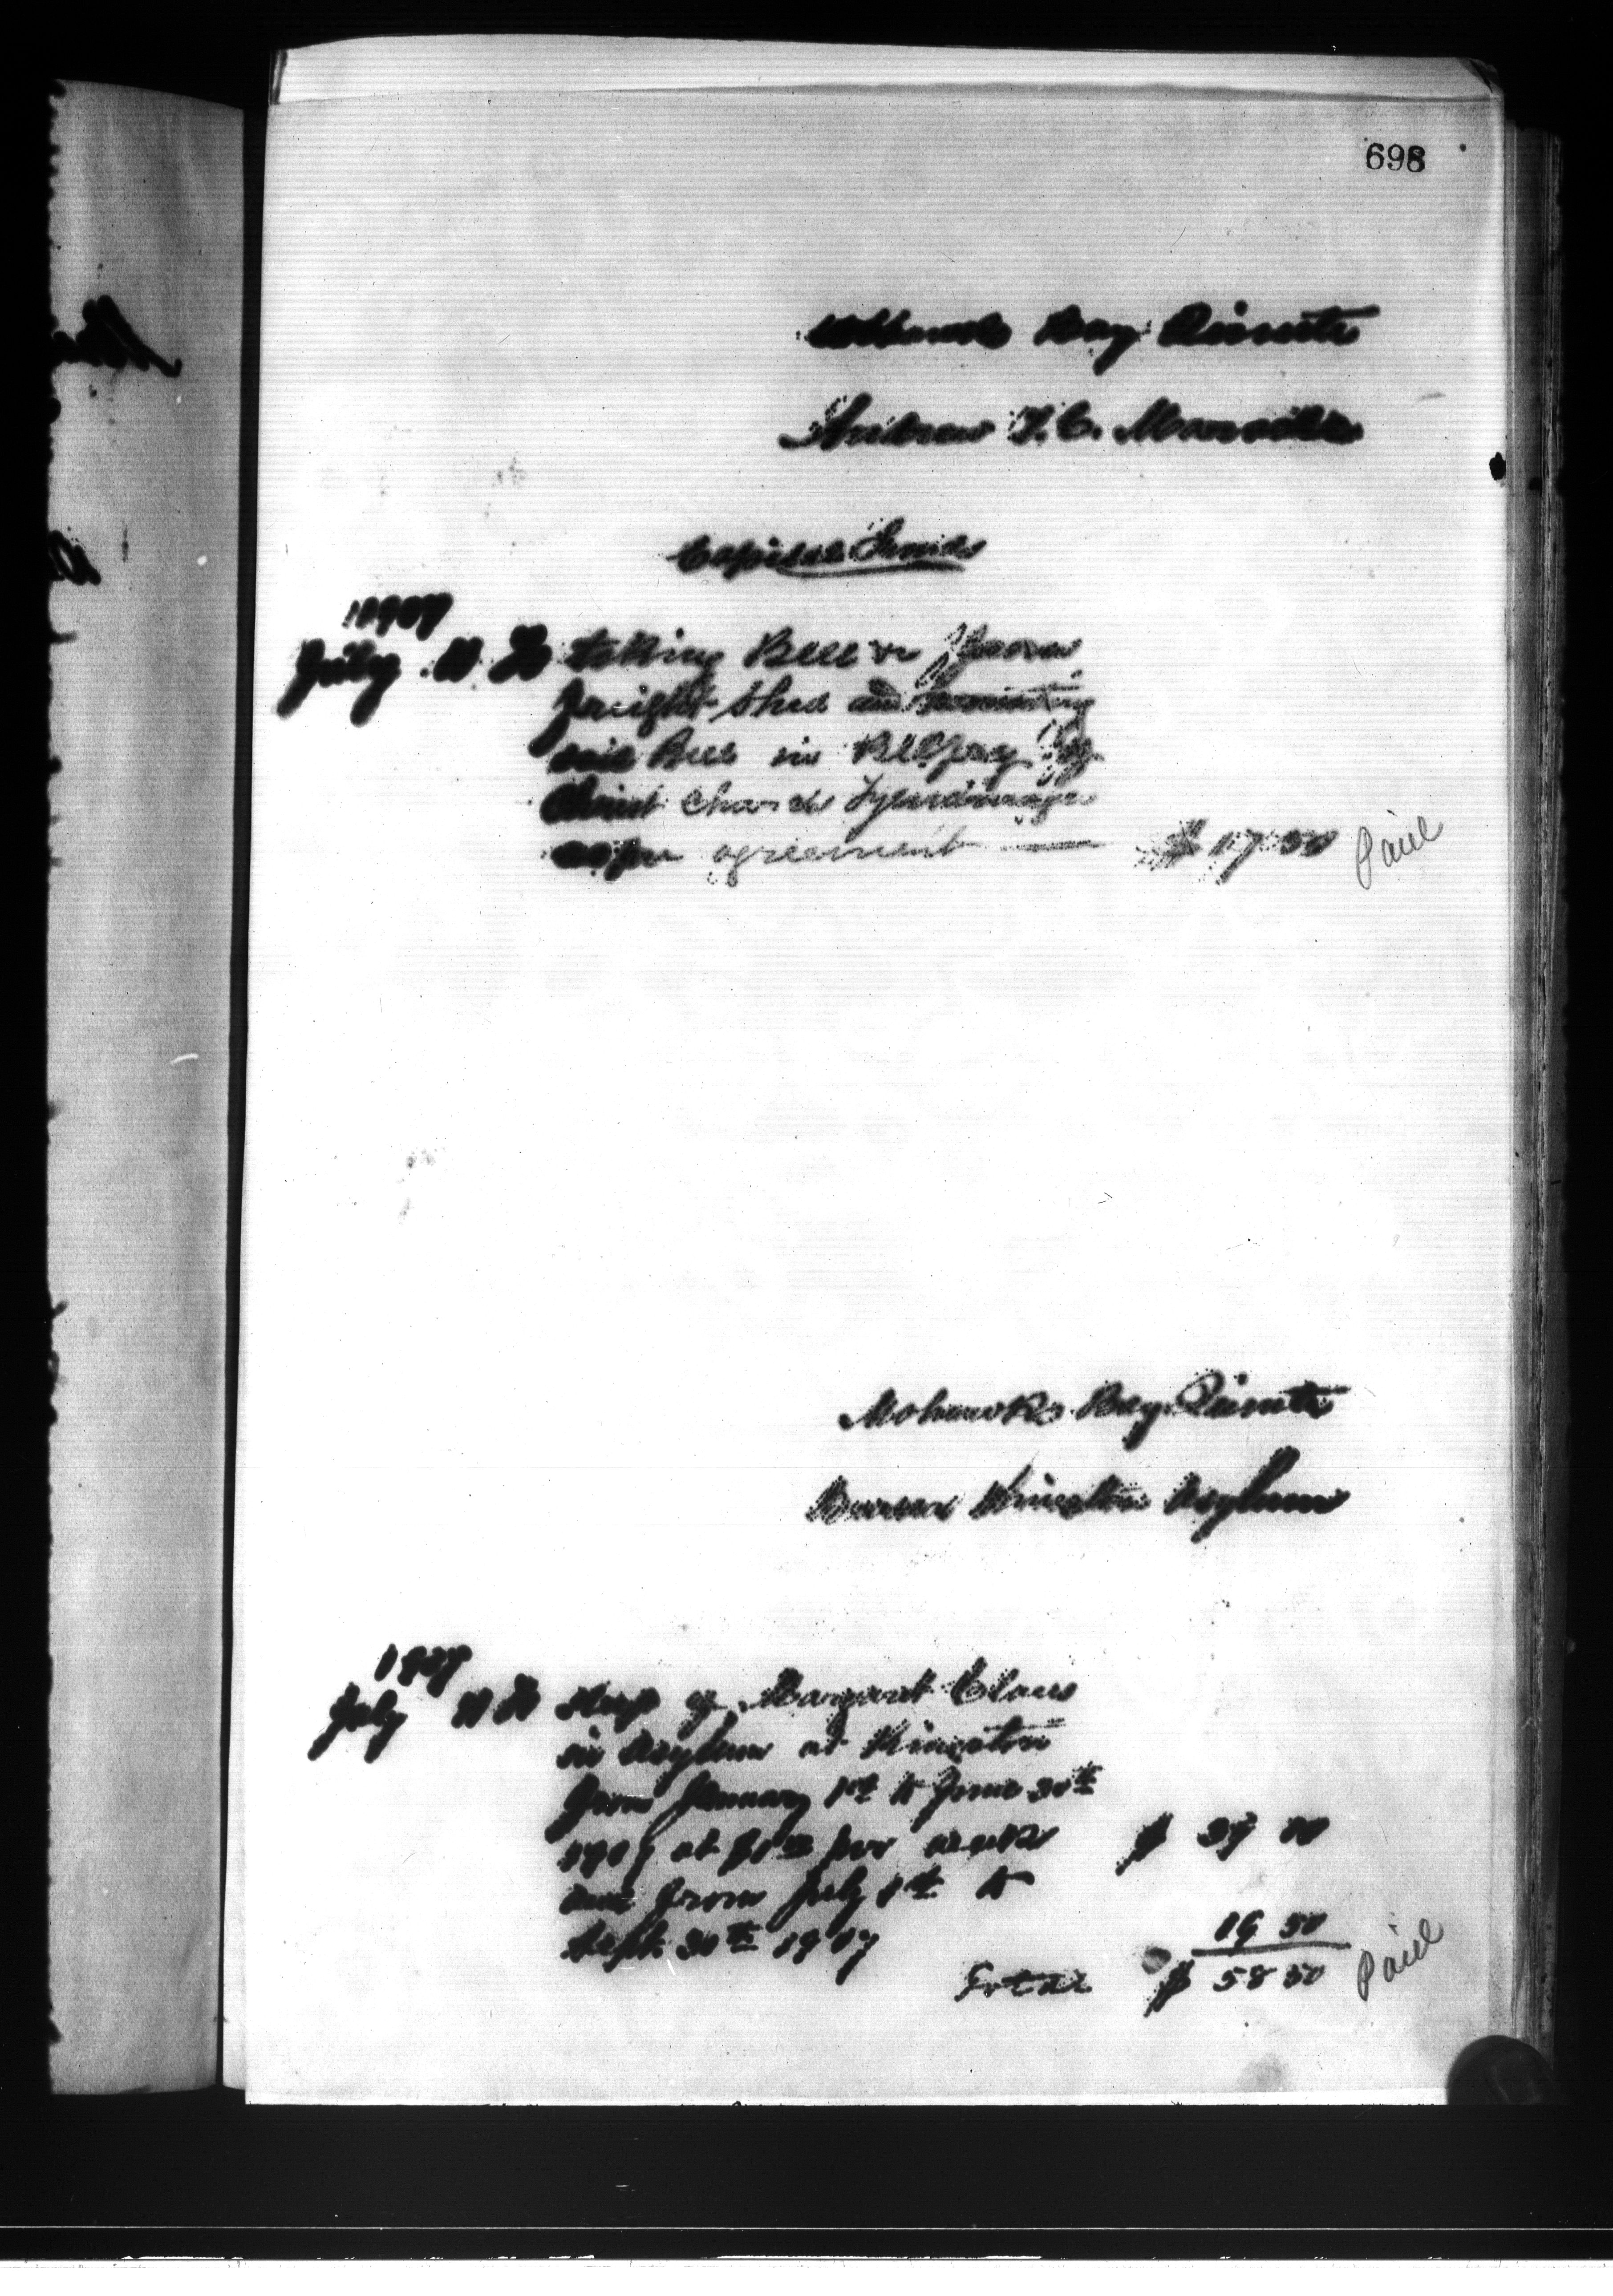 698
Mohawks Bay Quinte
Andrew T. C.
Capital Funds
1907
July 11 To taking Bell from
freight shed and mounting
said Bell in Bellfry of
Christ Church Tyendinaga
as per agreement — $ 17 50 Paid
Mohawks Bay Quinte
Bursar Kingston Asylum
1907
July 11 To Keep of Margaret Claus
in Asylum at Kingston
from January 1st to June 30th
1907 at $1.50 per week $ 39 00
and from July 1st to
Sept. 30th 1907 19 50
Total $ 58 50 Paid